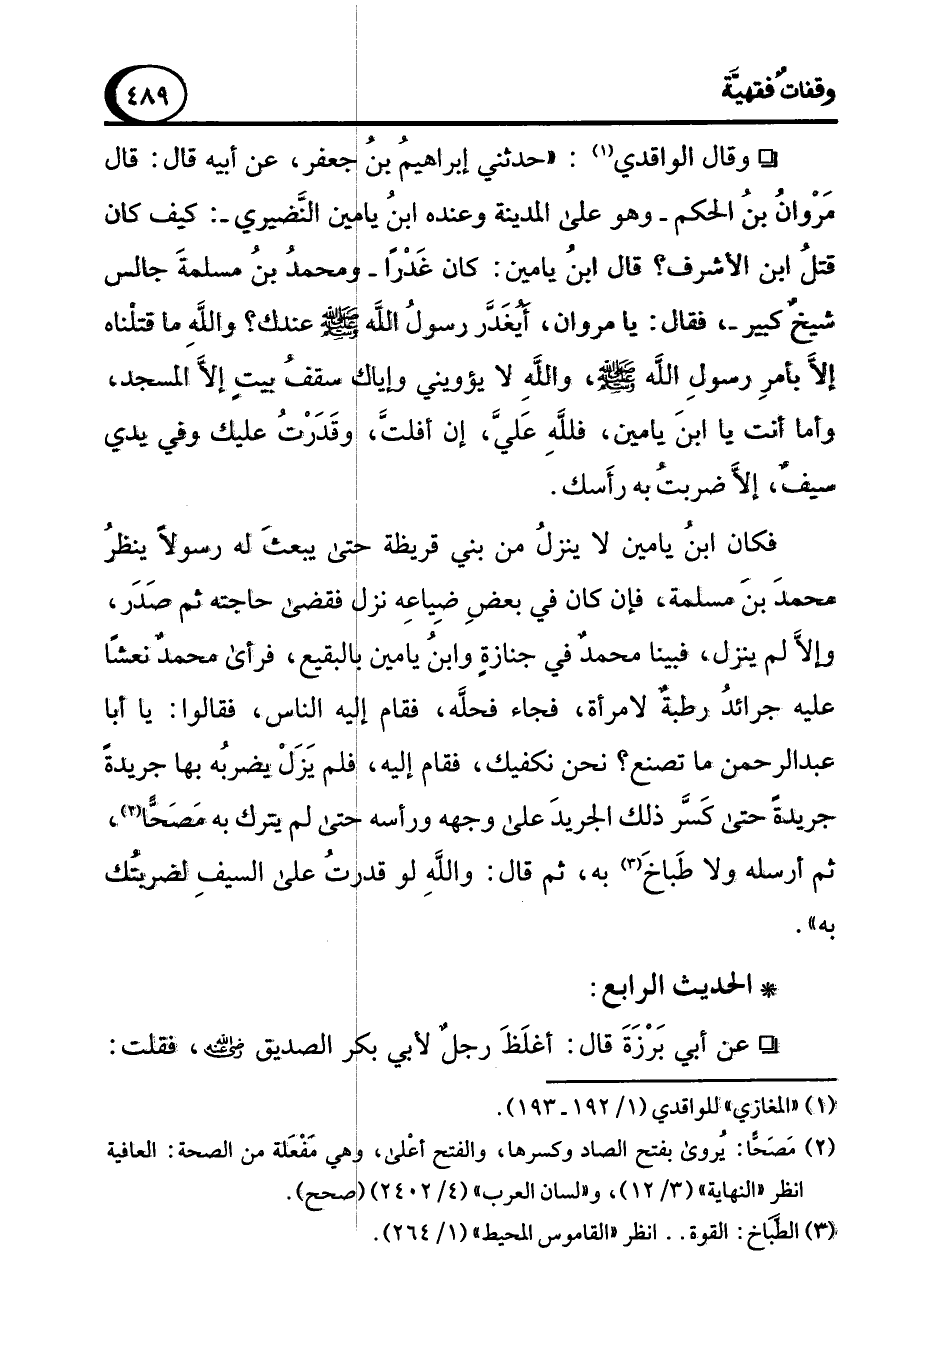 وقفاتٌ فقهيَّة
٤٨٩
❏ وقال الواقدي(١) : «حدثني إبراهيمُ بنُ جعفر، عن أبيه قال: قال
مَرْوانُ بنُ الحكم ـ وهو على المدينة وعنده ابنُ يامين النَّضيري ـ: كيف كان
قتلُ ابن الأشرف؟ قال ابنُ يامين: كان غَدْرًا ـ ومحمدُ بنُ مسلمةَ جالس
شيخٌ كبير ـ، فقال: يا مروان، أَيُغَدَّر رسولُ اللَّه ﷺ عندك؟ واللَّهِ ما قتلْناه
إلاَّ بأمرِ رسولِ اللَّه ﷺ، واللَّهِ لا يؤويني وإياك سقفُ بيتٍ إلاَّ المسجد،
وأما أنت يا ابنَ يامين، فللَّهِ عَليَّ، إن أفلتَّ، وقَدَرْتُ عليك وفي يدي
سيفٌ، إلاَّ ضربتُ به رأسك.
فكان ابنُ يامين لا ينزلُ من بني قريظة حتى يبعثَ له رسولاً ينظرُ
محمدَ بنَ مسلمة، فإن كان في بعضِ ضِياعِه نزل فقضى حاجته ثم صدَر،
وإلاَّ لم ينزل، فبينا محمدٌ في جنازةٍ وابنُ يامين بالبقيع، فرأى محمدٌ نعشًا
عليه جرائدُ رطبةٌ لامرأة، فجاء فحلَّه، فقام إليه الناس، فقالوا: يا أبا
عبدالرحمن ما تصنع؟ نحن نكفيك، فقام إليه، فلم يَزَلْ يضربُه بها جريدةً
جريدةً حتى كَسَّر ذلك الجريدَ على وجهه ورأسه حتى لم يترك به مَصَحًّا(٢)،
ثم أرسله ولا طَباخَ(٣) به، ثم قال: واللَّهِ لو قدرتُ على السيفِ لضربتُك
به».
* الحديث الرابع:
❏ عن أبي بَرْزَةَ قال: أغلَظَ رجلٌ لأبي بكر الصديق رضي الله عنه، فقلت:
(١) «المغازي» للواقدي (١/ ١٩٢ ـ ١٩٣).
(٢) مَصَحًّا: يُروى بفتح الصاد وكسرها، والفتح أعْلى، وهي مَفْعَلة من الصحة: العافية
انظر «النهاية» (٣/ ١٢)، و«لسان العرب» (٤/ ٢٤٠٢) (صحح).
(٣) الطَّباخ: القوة. . انظر «القاموس المحيط» (١/ ٢٦٤).